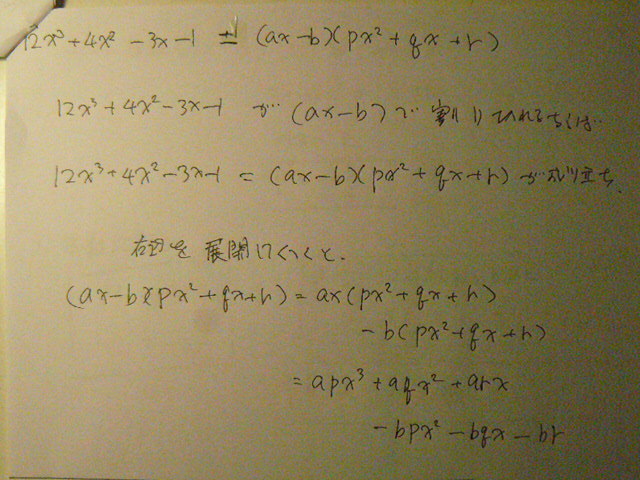 12x³+4x²-3x-1 = (ax-b)(px²+qx+r)
12x³+4x²-3x-1 が (ax-b)で 割り切れるならば
12x³+4x²-3x-1 = (ax-b)(px²+qx+r)が成り立ち、
右辺を展開していくと、
(ax-b)(px²+qx+r)=ax(px²+qx+r)
-b(px²+qx+r)
=apx³+aqx²+arx
-bpx²-bqx-br